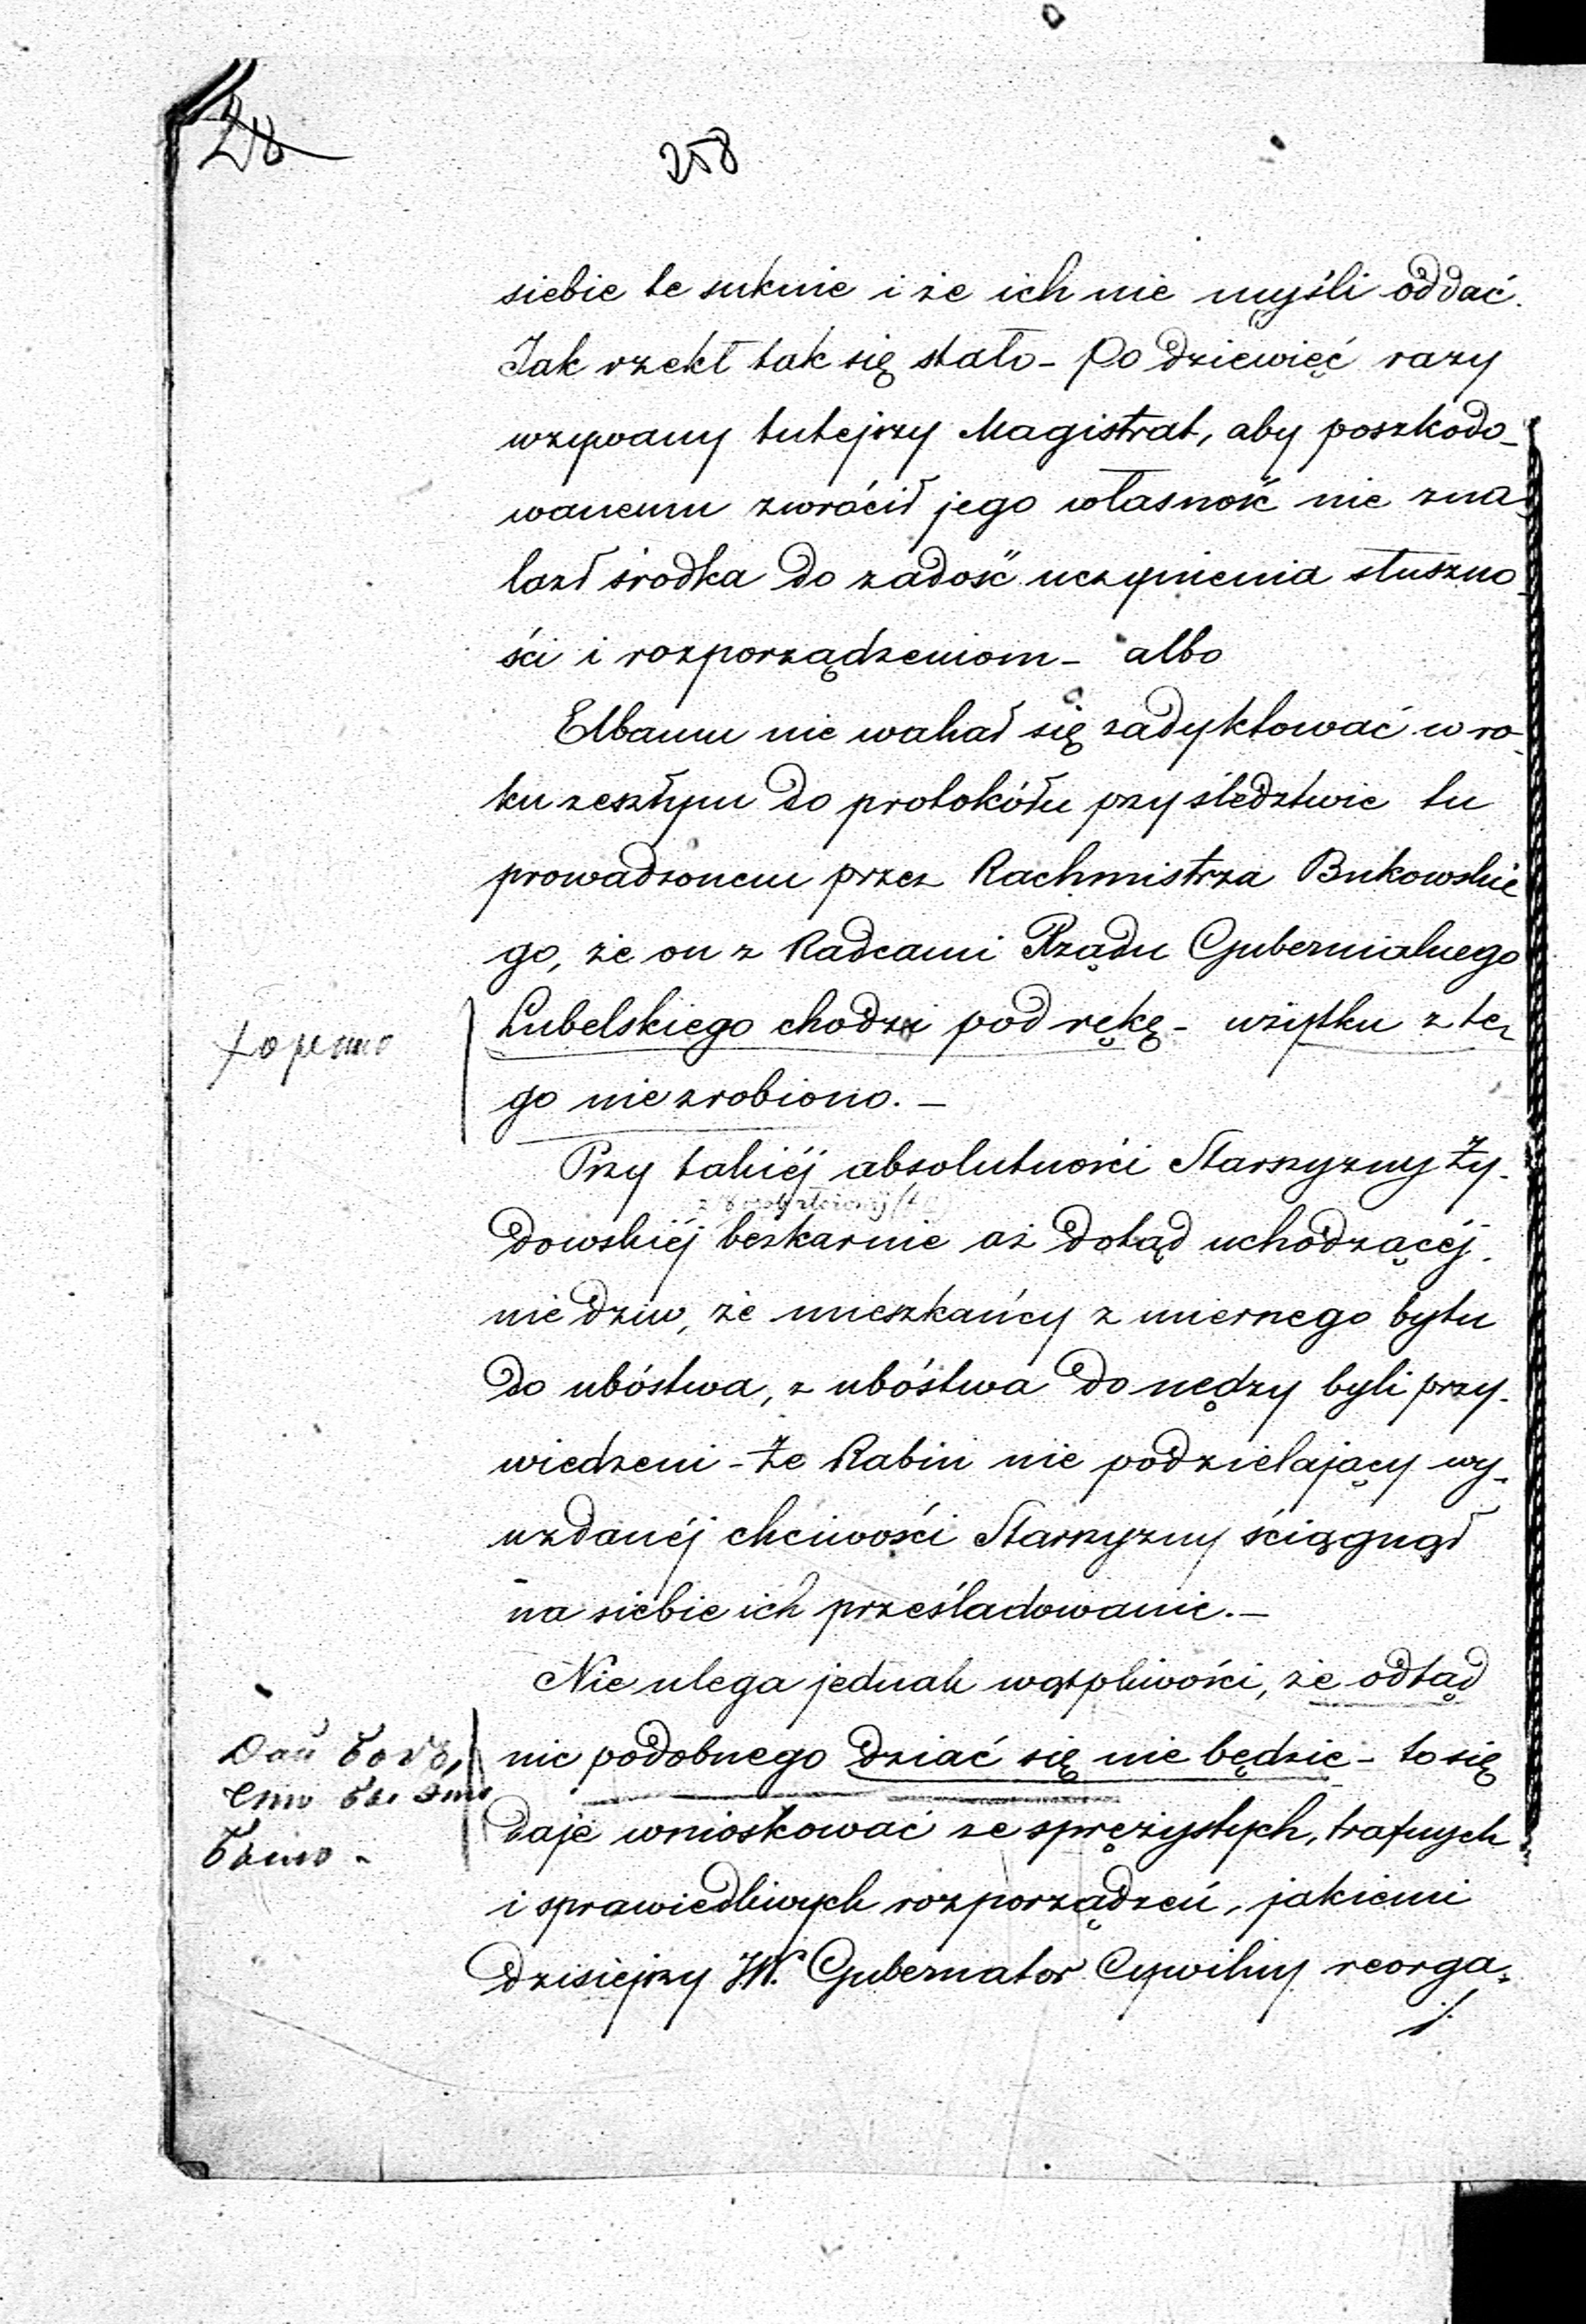 28
258
siebie te suknie i że ich nie myśli oddać.
Jak rzekł tak się stało - Po dziewięć razy
wzywany tutejszy Magistrat, aby poszkodo-
wanemu zwrócił jego własność nie zna-
lazł środka do zadość uczynienia słuszno-
ści i rozporządzeniom - albo
Elbaum nie wahał się zadyktować w ro-
ku zeszłym do protokółu przy śledztwie tu
prowadzonem przez Rachmistrza Bukowskie
go, że on z Radcami Rządu Gubernialnego
Lubelskiego chodzi pod rękę - użytku z te-
go nie zrobiono. -
Przy takiéj absolutności Starszyzny Ży-
dowskiéj bezkarnie aż dotąd uchodzącéj.
nie dziw, że mieszkańcy z miernego bytu
do ubóstwa, z ubóstwa do nędzy byli przy-
wiedzeni - Że Rabin nie podzielający wy-
uzdanéj chciwości Starszyzny ściągnął
na siebie ich prześladowanie. -
Nie ulega jednak wątpliwości, że odtąd
nic podobnego dziać się nie będzie - to się
daje wnioskować ze sprężystych, trafnych
i sprawiedliwych rozporządzeń, jakiemi
dzisiejszy JW. Gubernator Cywilny reorga-
хорошо
Дай Богъ,
было -